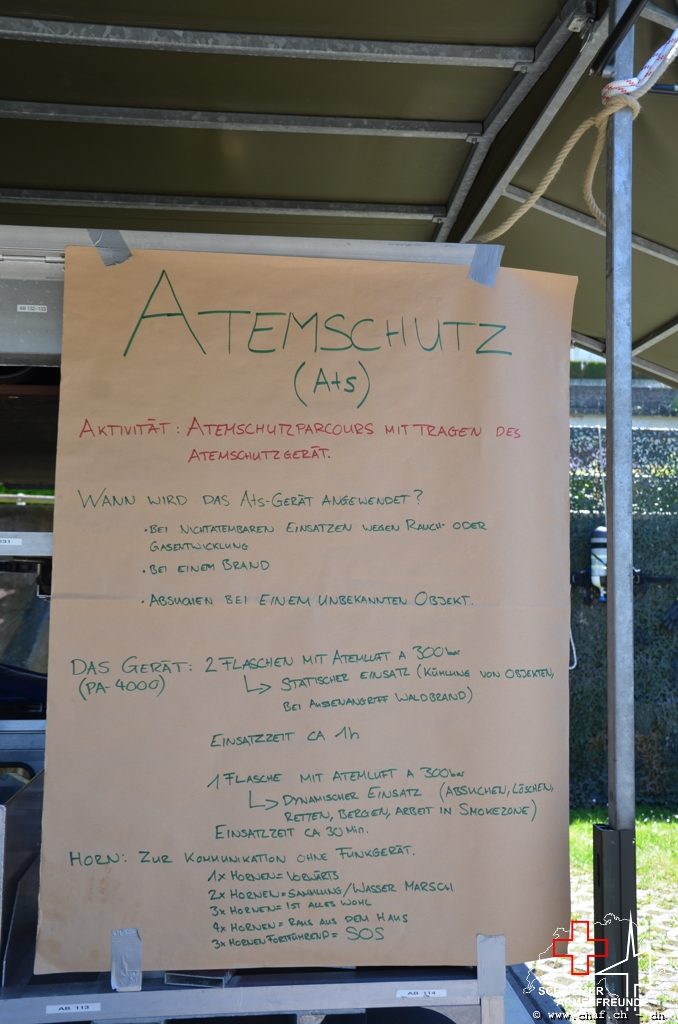 AB 132-133
ATEMSCHUTZ
(Ats)
AKTIVITÄT: ATEMSCHUTZPARCOURS MIT TRAGEN DES
ATEMSCHUTZGERÄT.
WANN WIRD DAS Ats-GERÄT ANGEWENDET?
• BEI NICHTATEMBAREN EINSATZEN WEGEN RAUCH- ODER
GASENTWICKLUNG
• BEI EINEM BRAND
• ABSUCHEN BEI EINEM UNBEKANNTEN OBJEKT.
DAS GERÄT: 2 FLASCHEN MIT ATEMLUFT A 300bar
(PA-4000)
STATISCHER EINSATZ (KÜHLUNG VON OBJEKTEN,
BEI AUSSENANGRIFF WALDBRAND)
EINSATZZEIT CA 1h
1 FLASCHE MIT ATEMLUFT A 300bar
DYNAMISCHER EINSATZ (ABSUCHEN, LÖSCHEN,
RETTEN, BERGEN, ARBEIT IN SMOKEZONE)
EINSATZZEIT CA 30 Min.
HORN: ZUR KOMMUNIKATION OHNE FUNKGERÄT.
1x HORNEN = VORWÄRTS
2x HORNEN = SAMMLUNG/WASSER MARSCH
3x HORNEN = IST ALLES WOHL
4x HORNEN = RAUS AUS DEM HAUS
3x HORNEN FORTFÜHREND = SOS
AB 113
AB 114
SCHWEIZER
ARMEEFREUNDE
© www.chaf.ch - dh